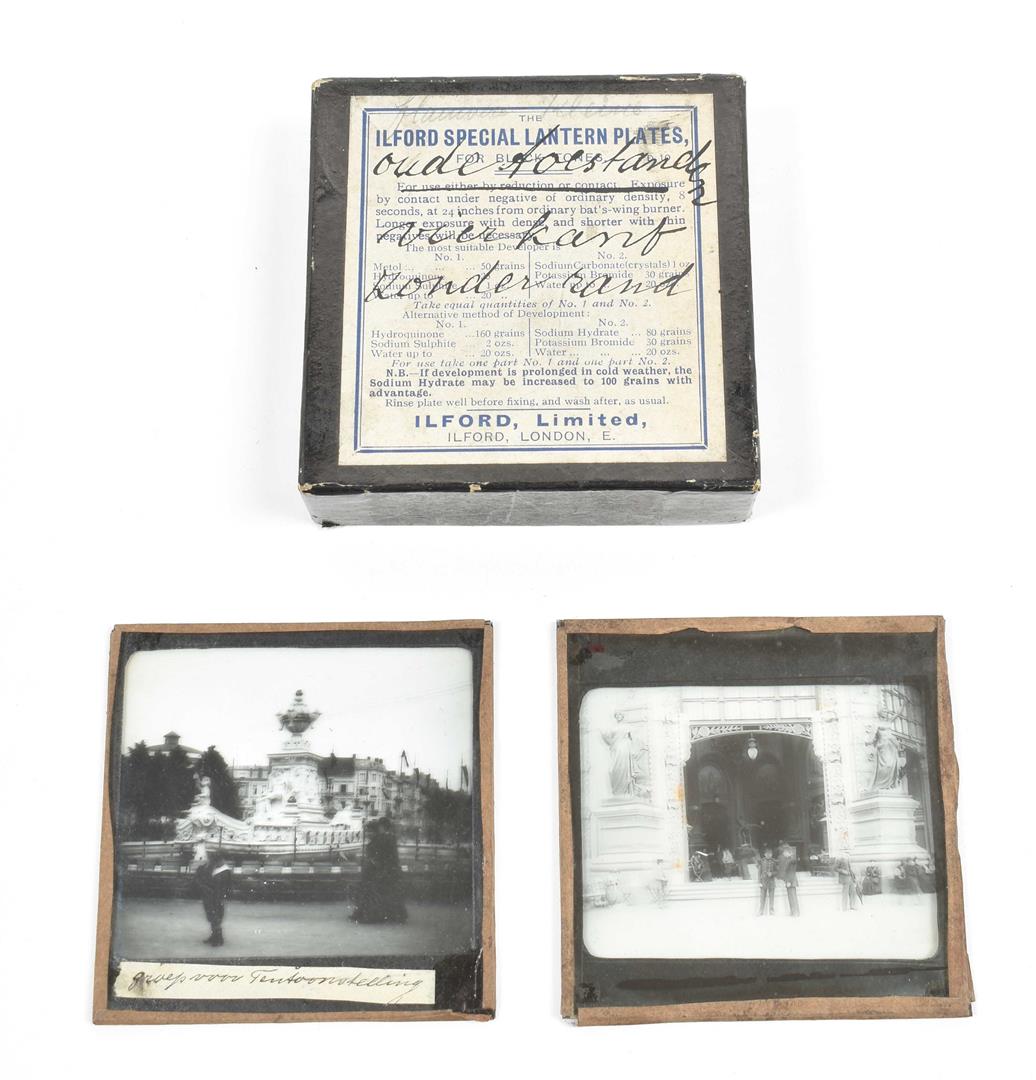 THE
ILFORD SPECIAL LANTERN PLATES,
FOR BLACK TONES
oude toestand
For use either by reduction or contact. Exposure
by contact under negative of ordinary density, 8
seconds, at 24 inches from ordinary bat's-wing burner.
Longer exposure with dense and shorter with thin
negatives will be necessary.
vierkant
The most suitable Developer is
No. 1. No. 2.
Metol ... ... ... 50 grains Sodium Carbonate (crystals) 1 oz
Hydroquinone Potassium Bromide 30 grains
Sodium Sulphite Water up to 20
zonder rand
up to ... 20 "
Take equal quantities of No. 1 and No. 2.
Alternative method of Development:
No. 1. No. 2.
Hydroquinone ...160 grains Sodium Hydrate ... 80 grains
Sodium Sulphite ... 2 ozs. Potassium Bromide 30 grains
Water up to ... 20 ozs. Water ... ... ... 20 ozs.
For use take one part No. 1 and one part No. 2.
N.B.—If development is prolonged in cold weather, the
Sodium Hydrate may be increased to 100 grains with
advantage.
Rinse plate well before fixing, and wash after, as usual.
ILFORD, Limited,
ILFORD, LONDON, E.
groep voor Tentoonstelling